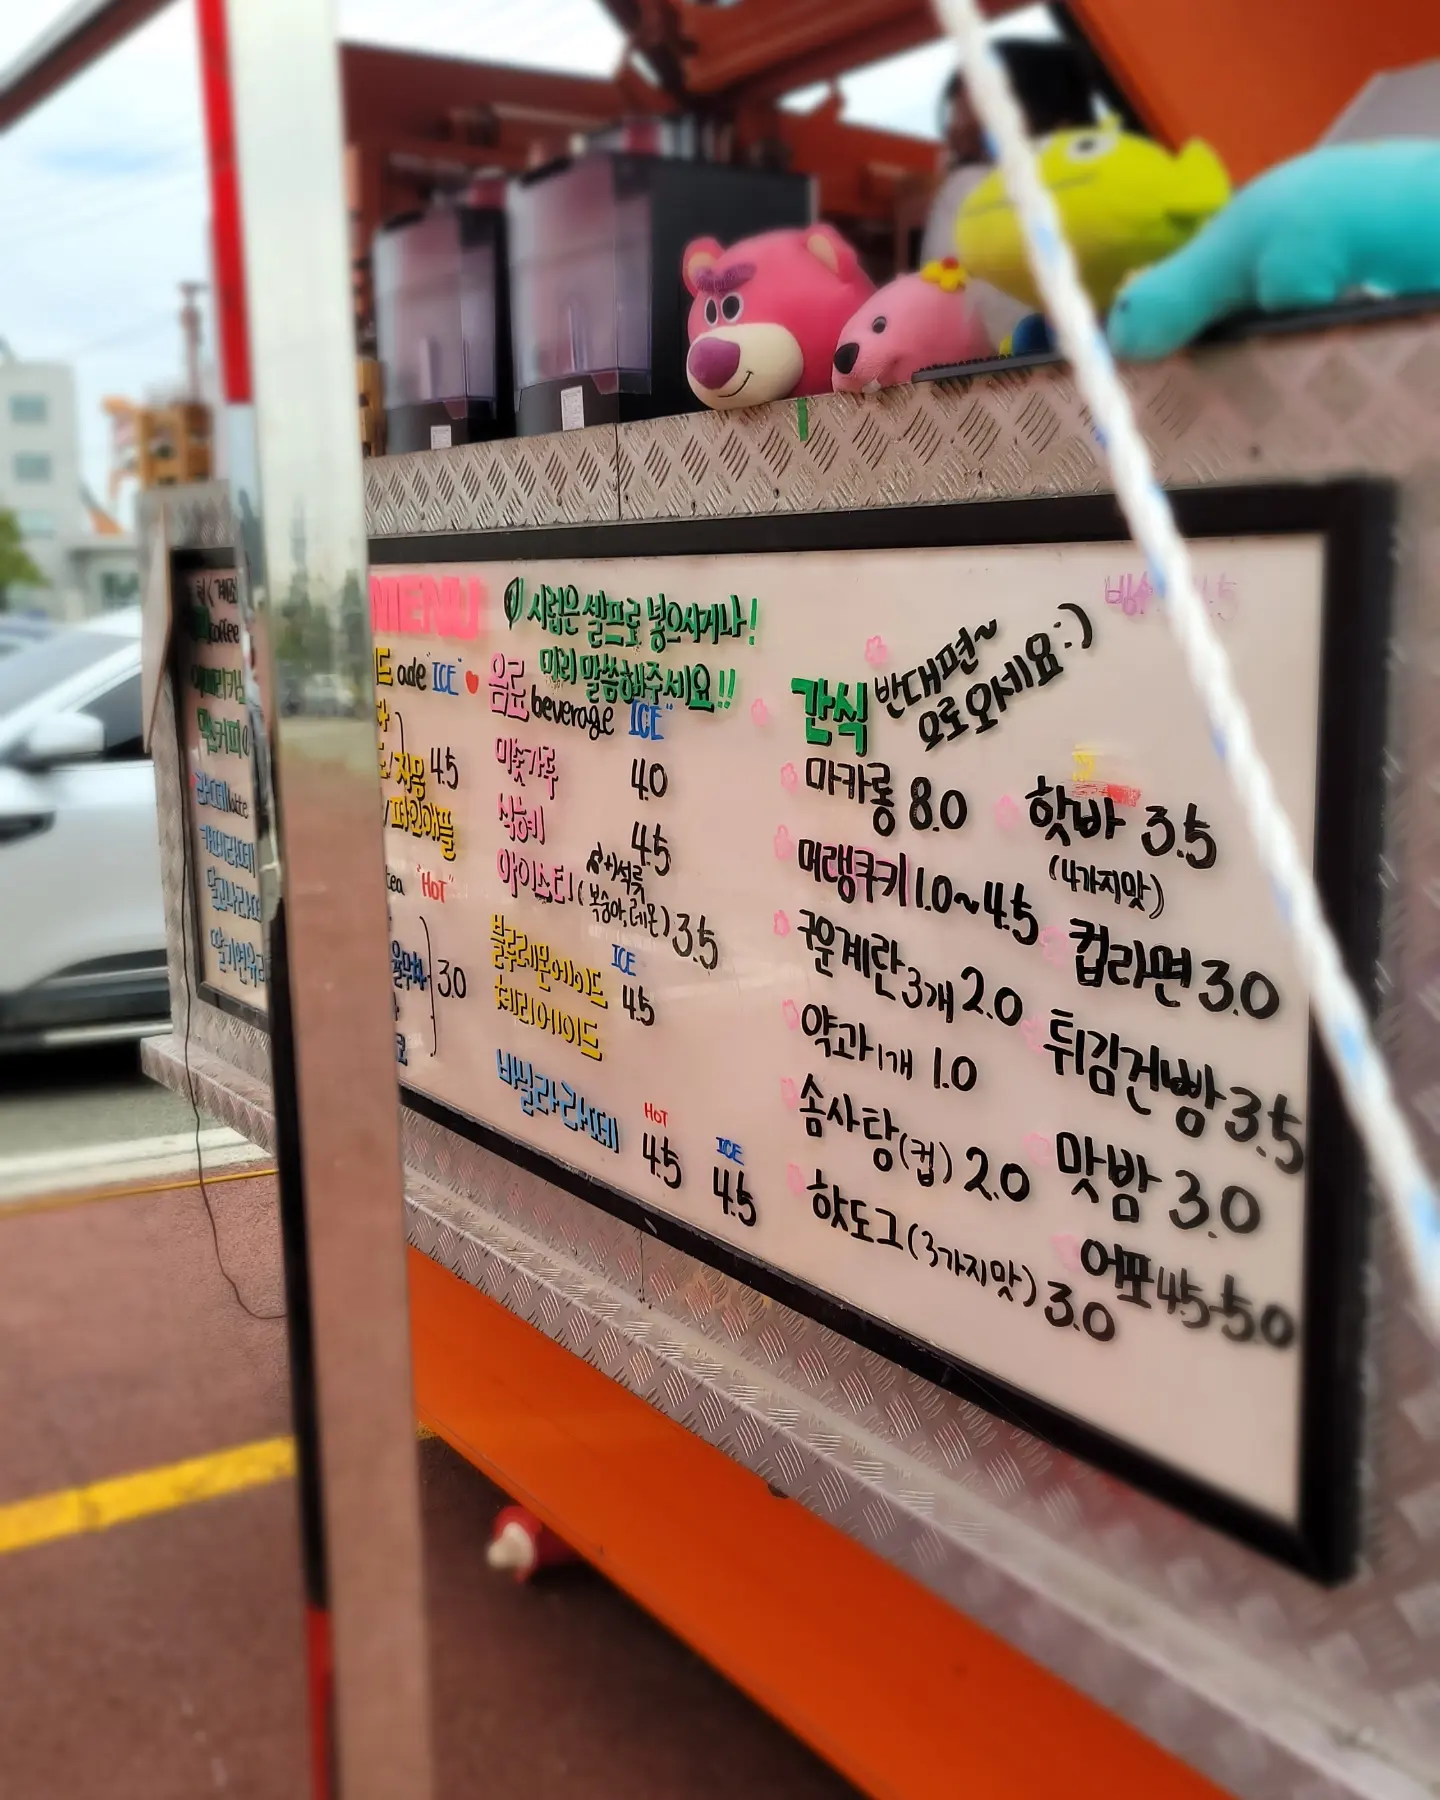 coffee
latte
MENU
ade "ICE"
자몽 4.5
/파인애플
tea "HOT"
율무차
3.0
시럽은 셀프로 넣으시거나!
미리 말씀해주세요!!
음료 beverage ICE
미숫가루 4.0
식혜 4.5
아이스티(복숭아,레몬) 3.5
석류
블루레몬에이드 ICE
체리에이드 4.5
바닐라라떼 HOT 4.5 ICE 4.5
간식 반대편~
으로 오세요:)
마카롱 8.0
머랭쿠키 1.0~4.5
구운계란 3개 2.0
약과 1개 1.0
솜사탕(컵) 2.0
핫도그(3가지맛) 3.0
핫바 3.5
(4가지맛)
컵라면 3.0
튀김건빵 3.5
맛밤 3.0
어포 4.5-5.0